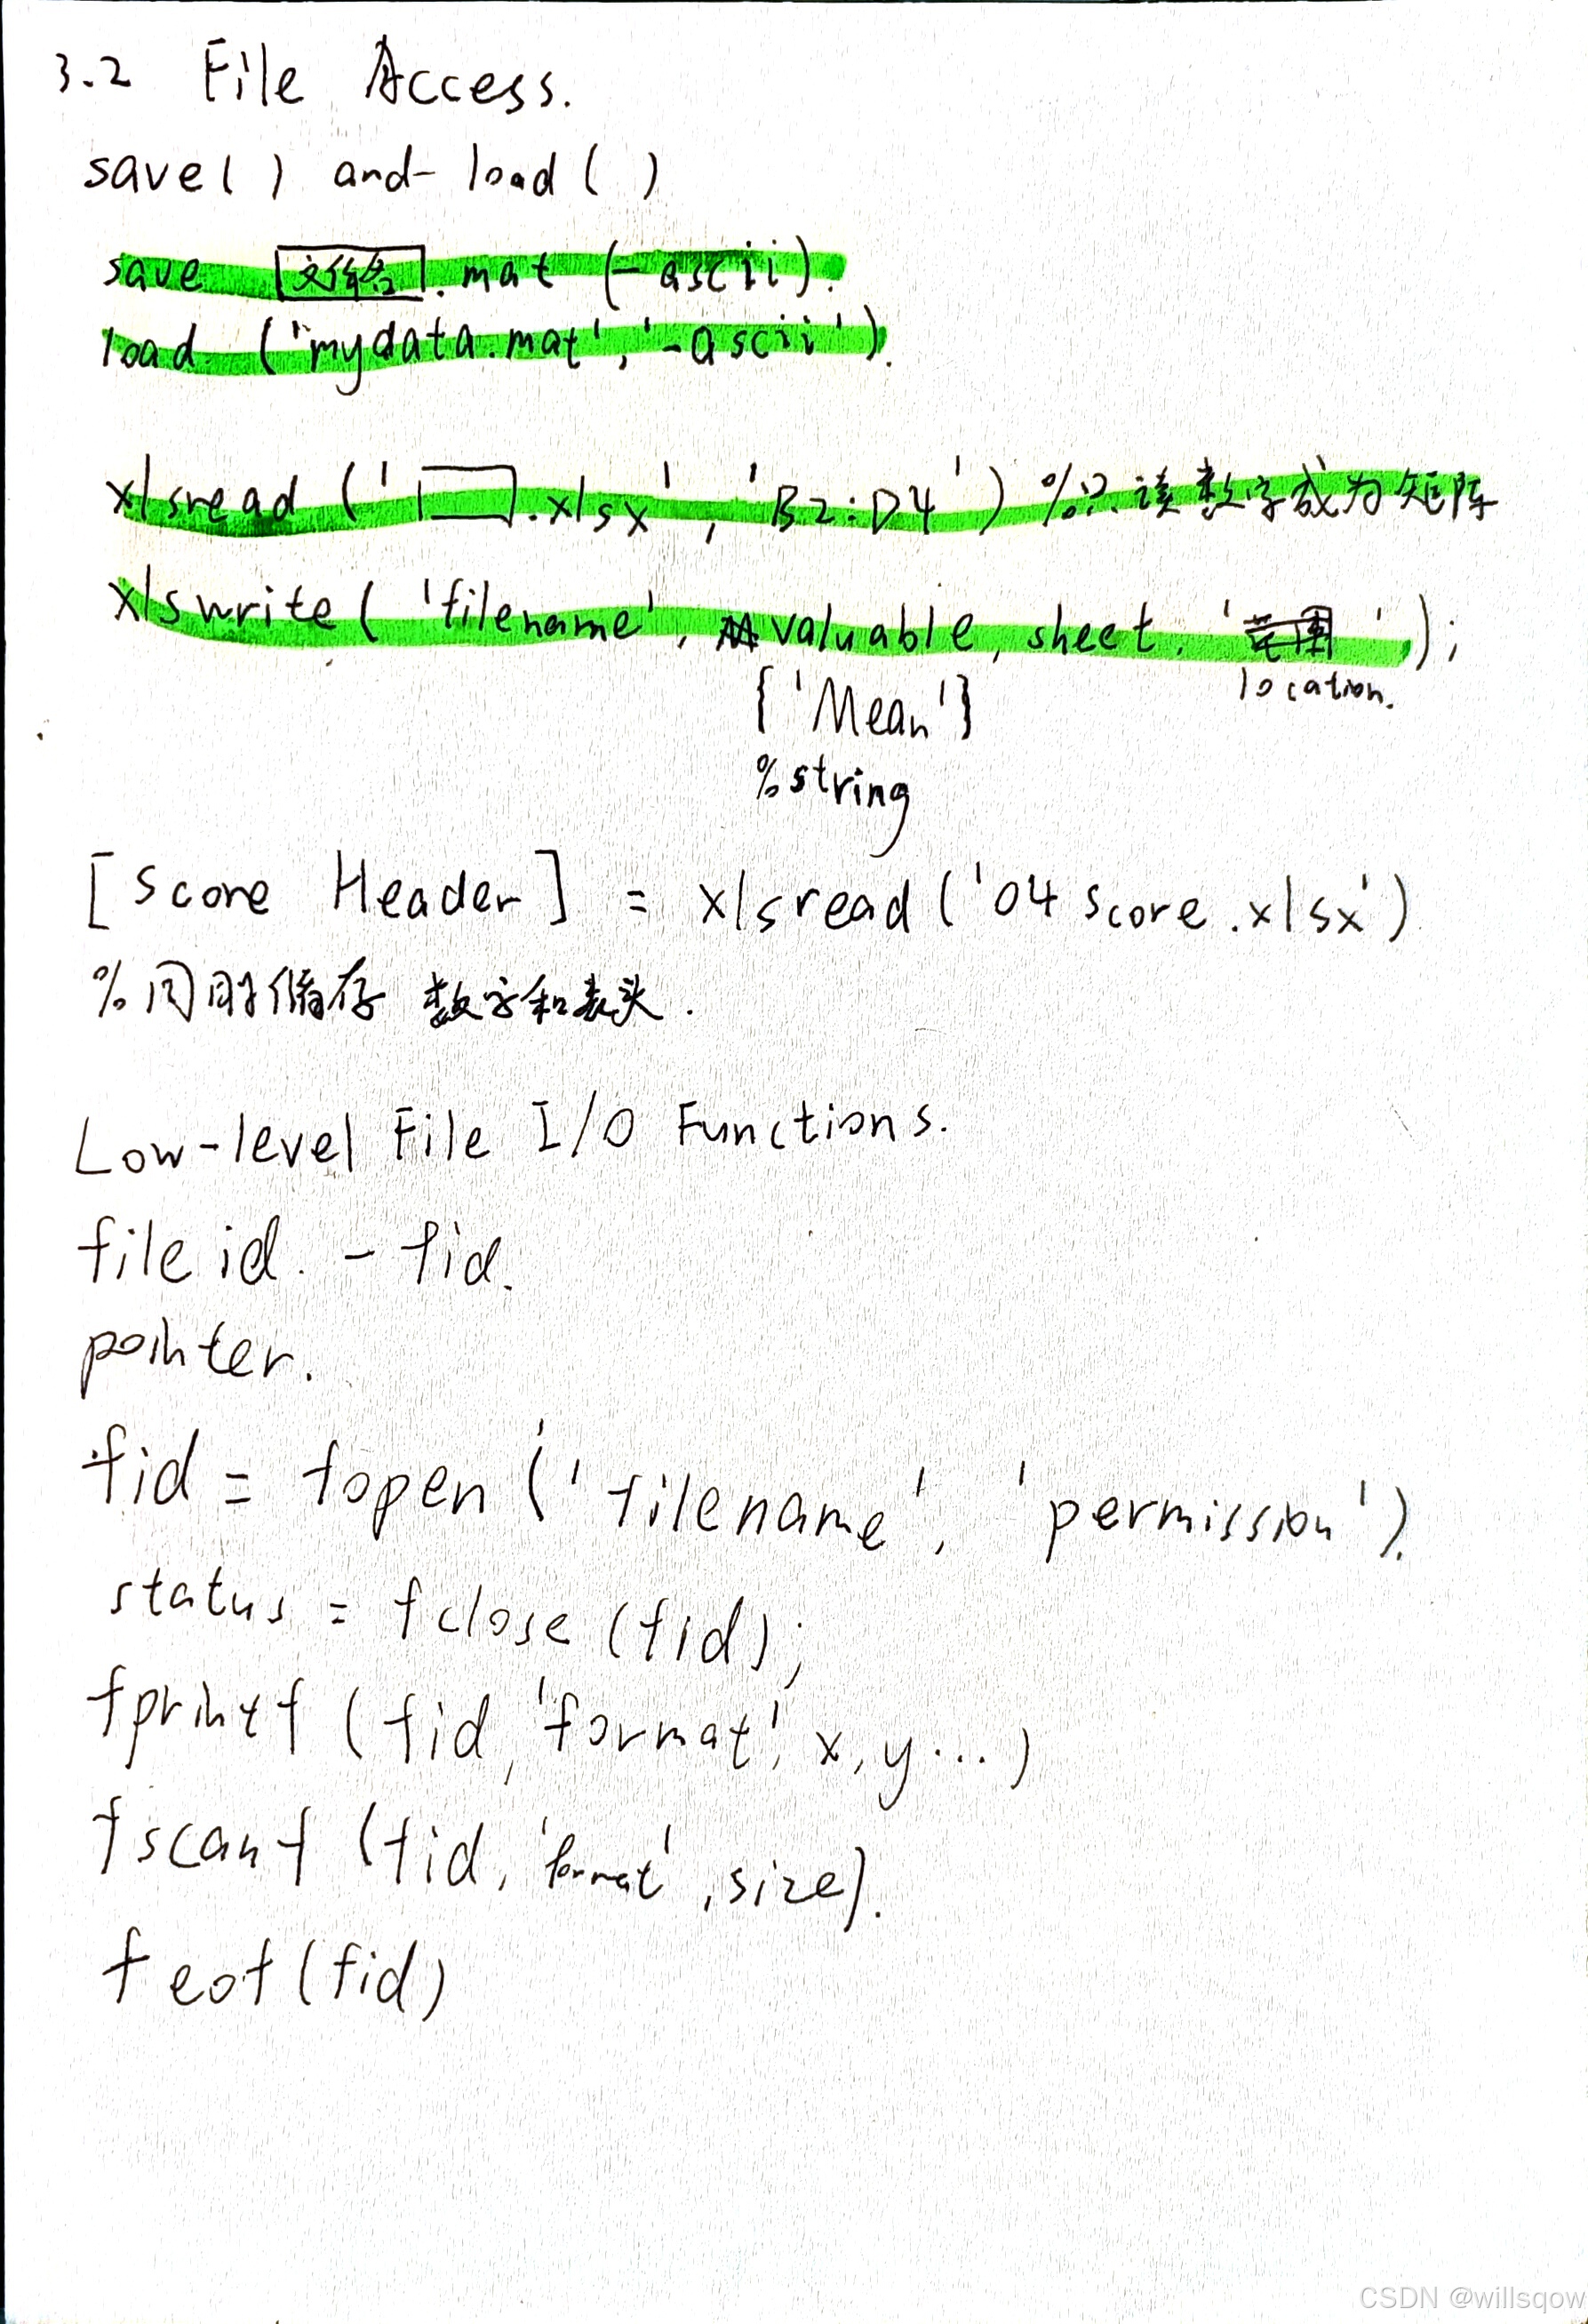 3.2 File Access.
save() and load()
save 文件名.mat (-ascii).
load ('mydata.mat', '-ascii').
xlsread (' .xlsx', 'B2:D4') %只读数字成为矩阵
xlswrite( 'filename', valuable, sheet. ' ');
location.
{'Mean'}
%string
[score Header] = xlsread('04score.xlsx')
%同时储存 数字和表头.
Low-level File I/O Functions.
file id. - fid.
pointer.
fid = fopen ('filename', 'permission').
status = fclose (fid);
fprintf (fid, 'format', x, y...)
fscanf (fid, 'format', size).
feof(fid)
CSDN @willsqow